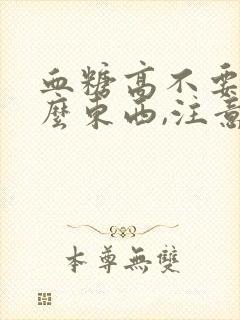 血糖高不要
麼東西,注意
本尊無雙